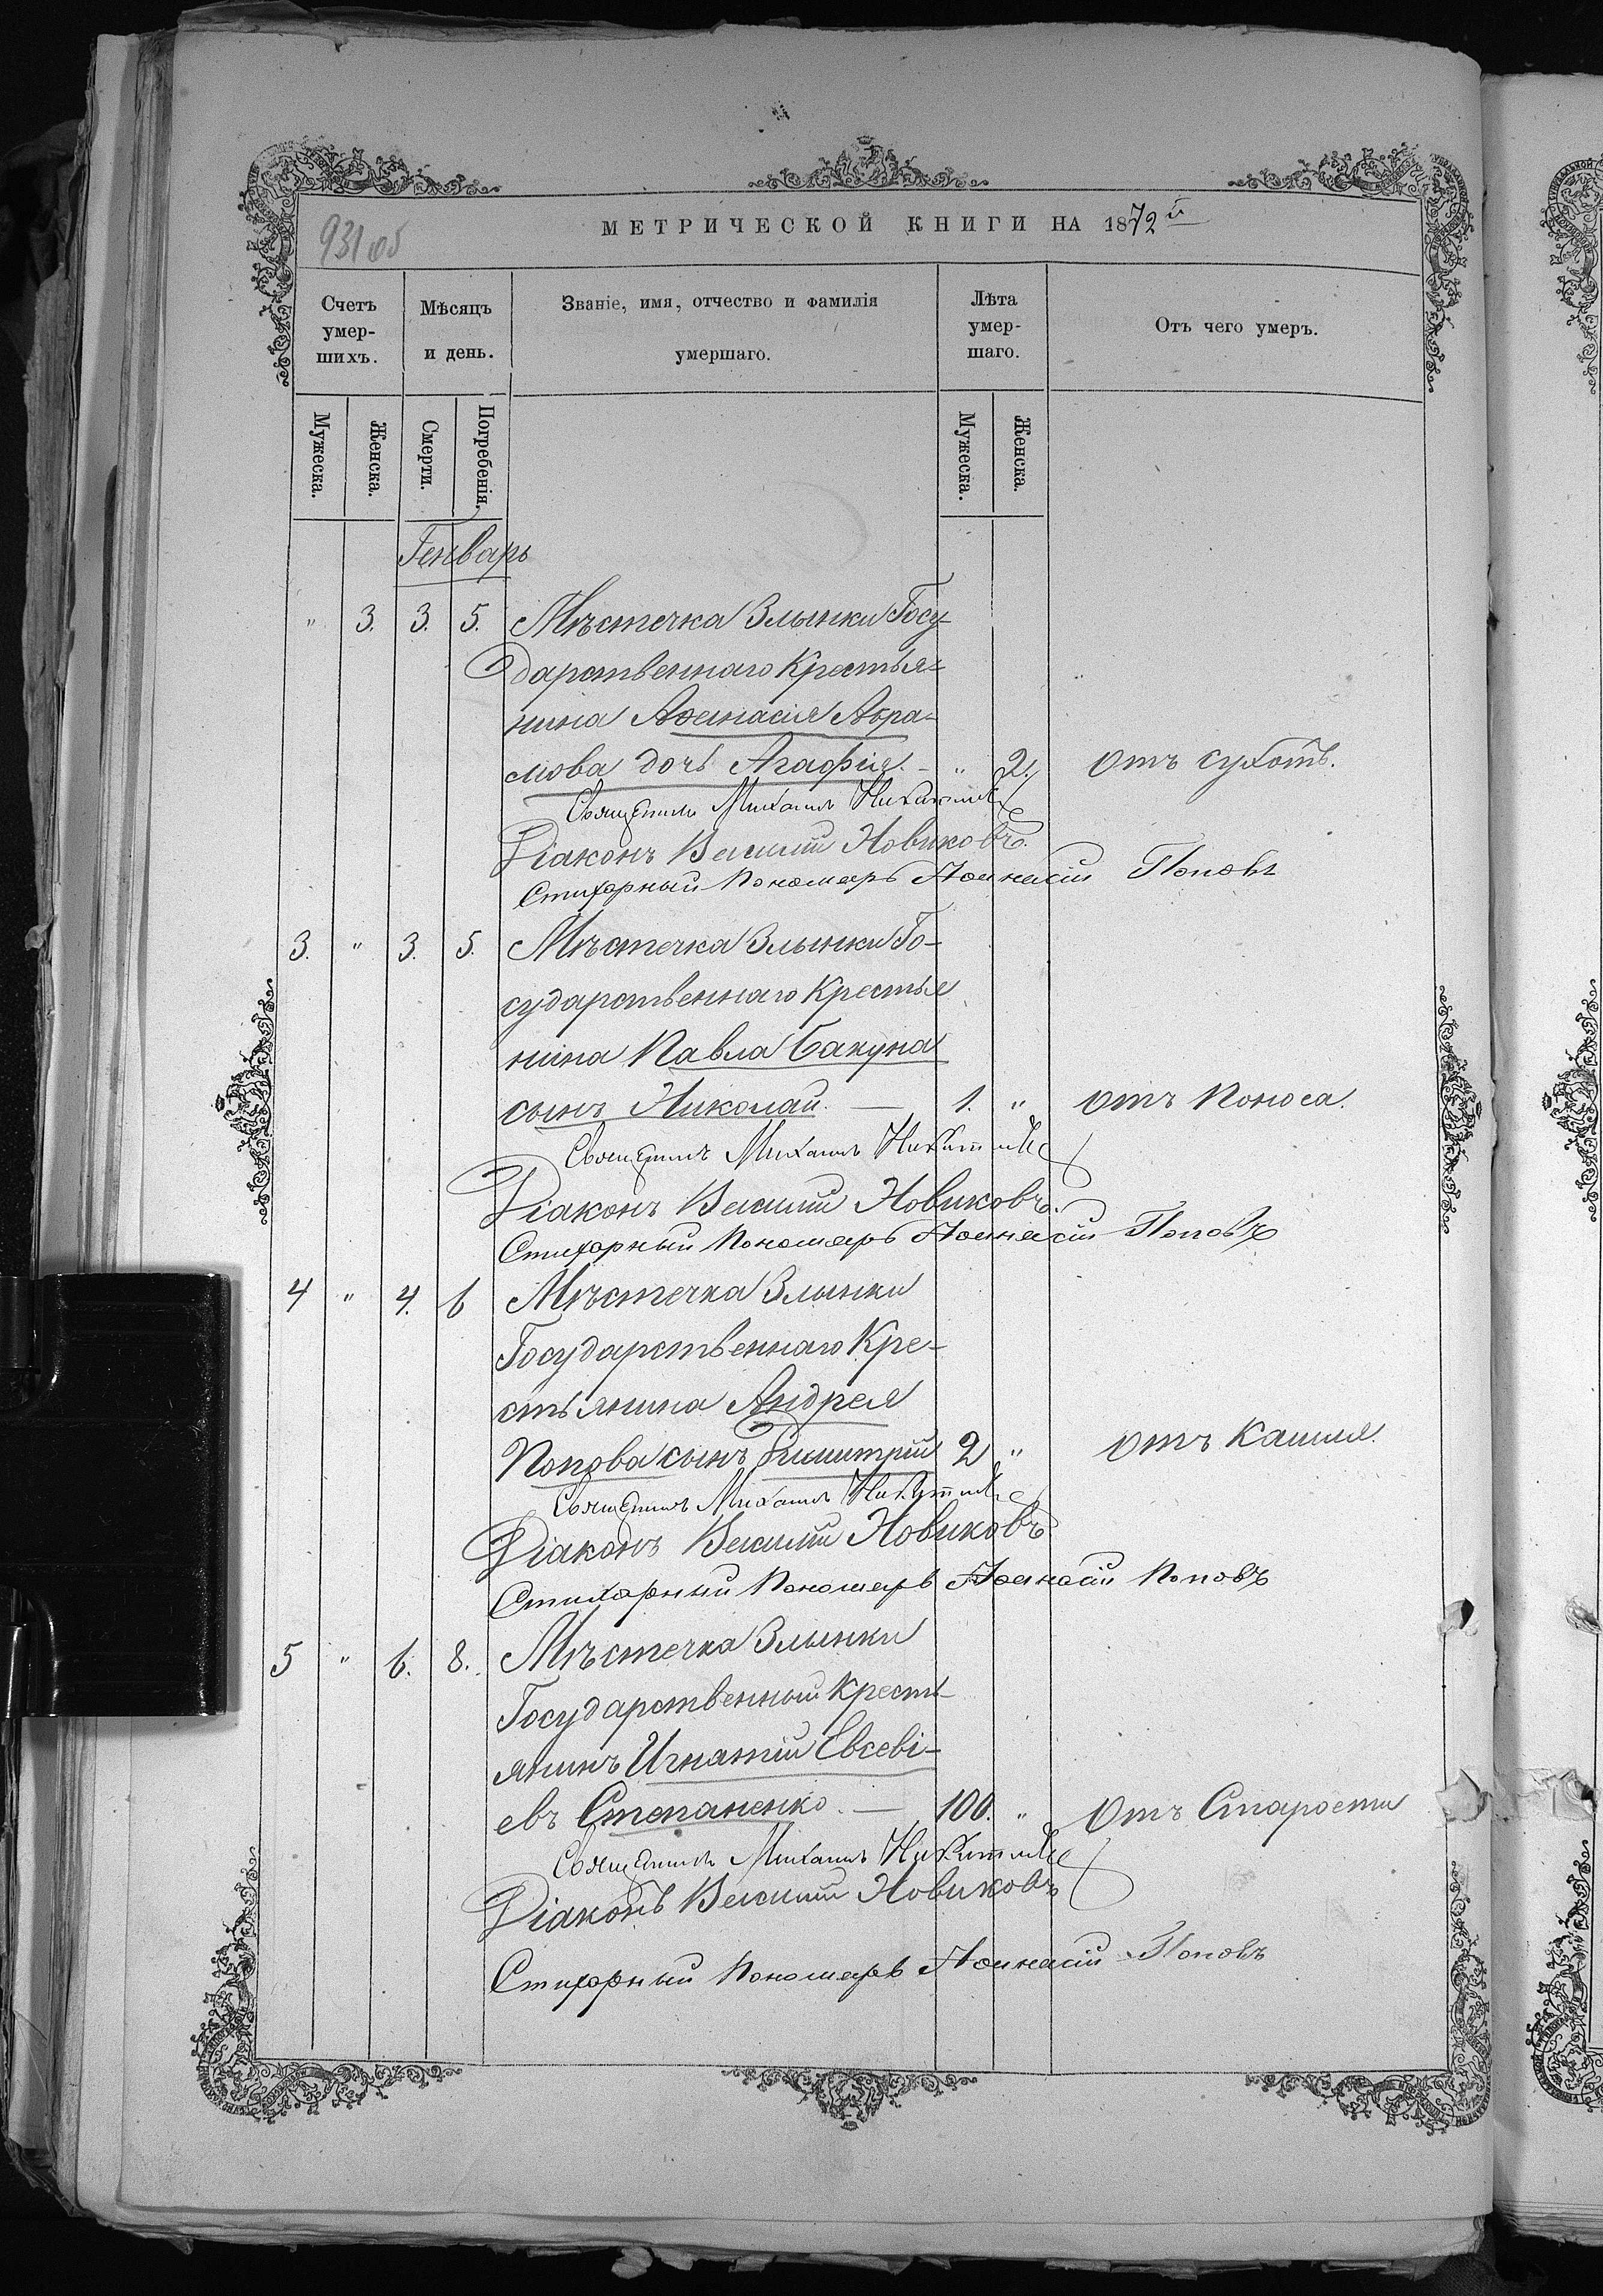 931 об
МЕТРИЧЕСКОЙ КНИГИ НА 1872й
Счетъ умер-шихъ.
Мѣсяцъ и день.
Званіе, имя, отчество и фамилія умершаго.
Лѣта умер-шаго.
Отъ чего умеръ.
Мужеска. Женска. Смерти. Погребенія. Мужеска. Женска.
Генварь
" 3. 3. 5. Мѣстечка Злынки Госу-
дарственнаго Крестья-
нина Аѳанасія Абра-
мова дочь Агафія. - " 2. отъ сухотъ.
Священникъ Михаилъ
Діаконъ Василій Новиковъ.
Стихарный Пономарь Аѳанасій Поповъ
3. " 3. 5. Мѣстечка Злынки Го-
сударственнаго Крестья
нина Павла Бакуна
сынъ Николай. — 1. " отъ Поноса.
Священникъ Михаилъ
Діаконъ Василій Новиковъ.
Стихарный Пономарь Аѳанасій Поповъ
4 " 4. 6 Мѣстечка Злынки
Государственнаго Кре-
стьянина Андрея
Попова сынъ Димитрій 2 " отъ Кашля.
Священникъ Михаилъ
Діаконъ Василій Новиковъ
Стихарный Пономарь Аѳанасій Поповъ
5 " 6. 8. Мѣстечка Злынки
Государственный Кресть-
янинъ Игнатій Евсеві-
евъ Степаненко. — 100. " Отъ Старости
Священникъ Михаилъ
Діаконъ Василій Новиковъ
Стихарный Пономарь Аѳанасій Поповъ